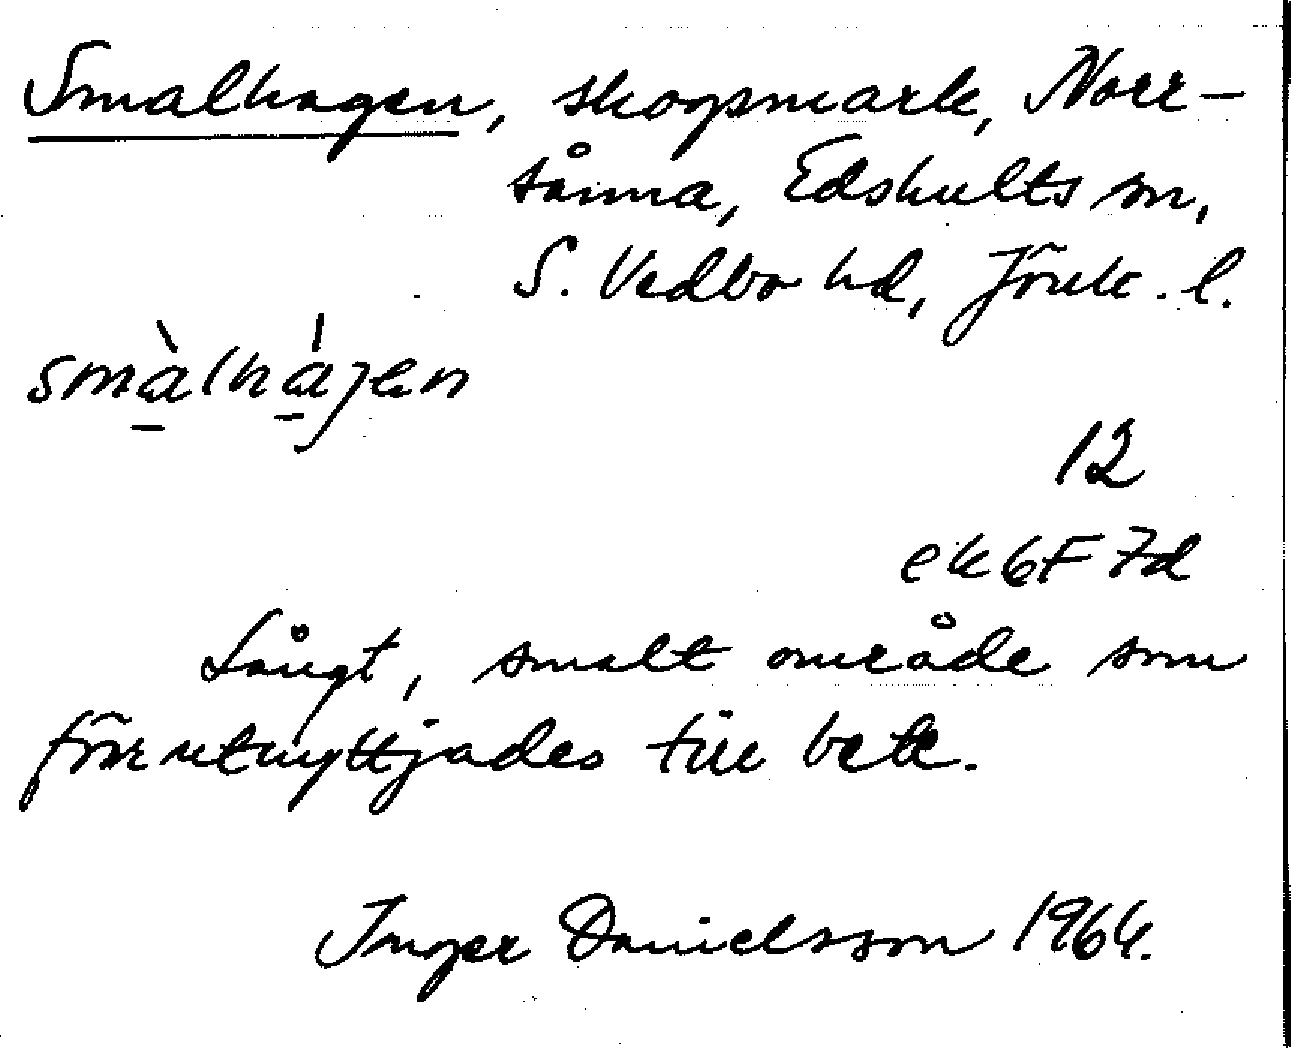 Smalhagen, skogsmark, Norr-
sånna, Edshults sn,
S. Vedbo hd, Jönk. l.
smàlhájen
12
ek6F7d
Långt, smalt område som
förr utnyttjades till bete.
Inger Danielsson 1964.